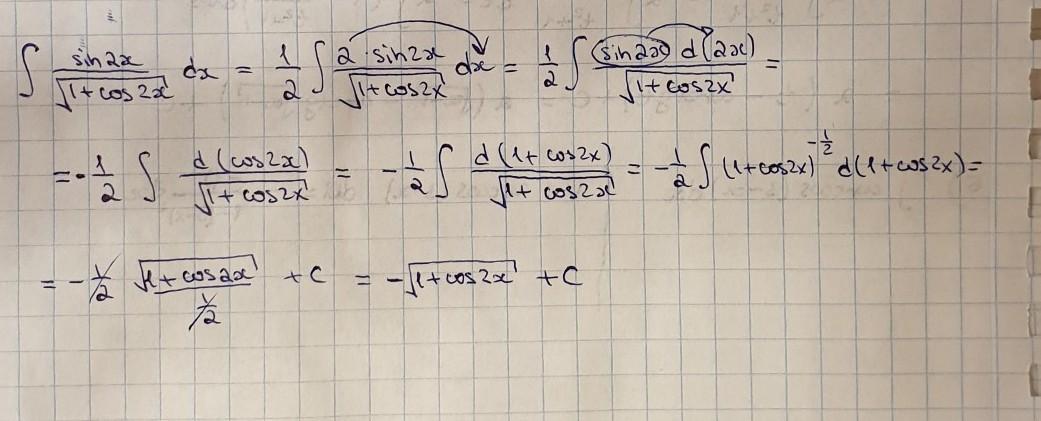 ∫ sin2x / √(1+cos2x) dx = 1/2 ∫ 2·sin2x / √(1+cos2x) dx = 1/2 ∫ sin2x d(2x) / √(1+cos2x) =
= -1/2 ∫ d(cos2x) / √(1+cos2x) = -1/2 ∫ d(1+cos2x) / √(1+cos2x) = -1/2 ∫ (1+cos2x)^(-1/2) d(1+cos2x) =
= -1/2 √(1+cos2x) / (1/2) + C = -√(1+cos2x) + C